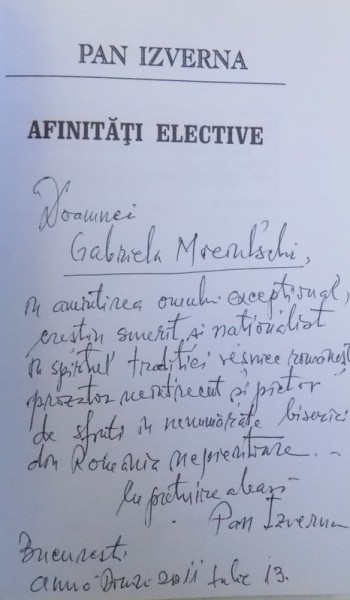 PAN IZVERNA
AFINITĂŢI ELECTIVE
Doamnei
Gabriela
în amintirea omului excepţional,
creştin smerit, şi naţionalist
în spiritul tradiţiei veşnice româneşti
prozator neîntrecut şi pictor
de sfinţi în nenumărate biserici
din România nepieritoare. –
Cu preţuire aleasă
Pan Izverna
Bucureşti
anno Domini 2011 Iulie 13.